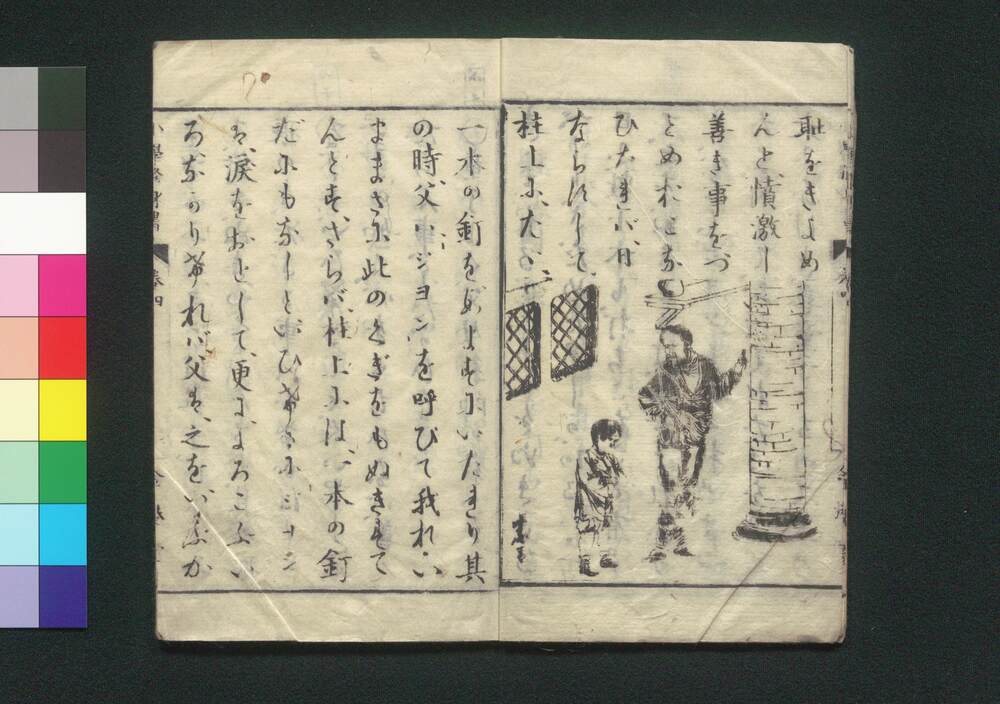 耻をきよめ
んと憤激し
善き事をつ
とめおこな
ひたれバ日
ならずして
柱上に、たゞ
一本の釘をあますにいたれり其
の時、父ハ、ジヨンを呼びて我れ、い
ままさに此のくぎをもぬきすて
んとす、さらバ、柱上にハ、一本の釘
だにもなしと、いひけるにジヨン
ハ、涙をおとして、更によろこぶい
ろなかりけれバ父ハ、之をいぶか